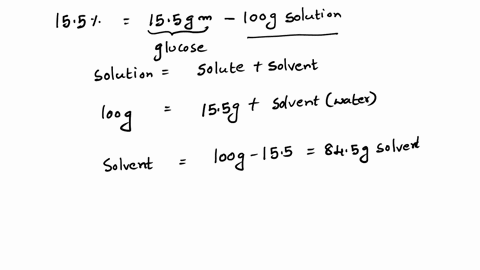 15.5% = 15.5gm - 100g solution
glucose
solution = solute + solvent
100g = 15.5g + solvent (water)
Solvent = 100g - 15.5 = 84.5g solvent